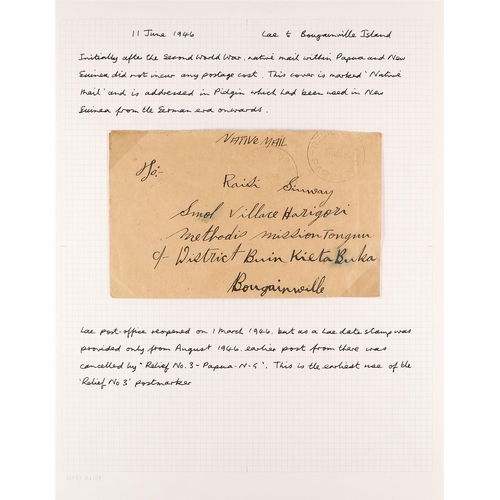 11 June 1946 Lae to Bougainville Island
Initially after the Second World War, native mail within Papua and New
Guinea did not incur any postage cost. This cover is marked 'Native
Mail' and is addressed in Pidgin which had been used in New
Guinea from the German era onwards.
NATIVE MAIL
To:-
Raisi Sinway
Smol Village Harigori
Methodis mission Tongnu
c/- District Buin Kieta Buka
Bougainville
Lae post-office reopened on 1 March 1946, but as a Lae date stamp was
provided only from August 1946, earlier post from there was
cancelled by 'Relief No.3-Papua-N-G'. This is the earliest use of the
'Relief No 3' postmarker